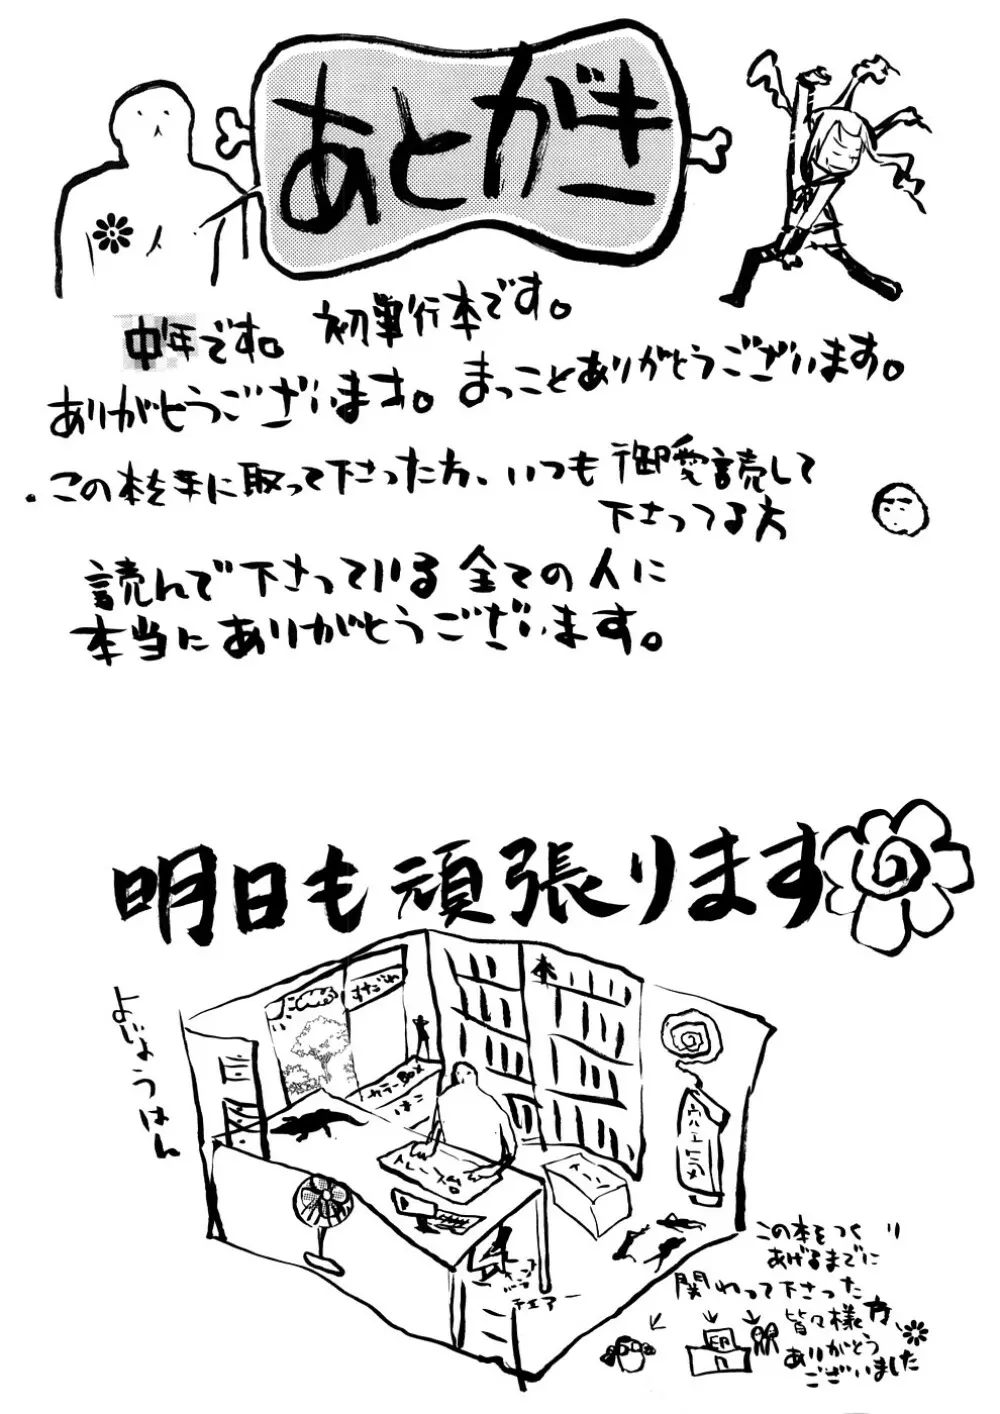 あとがき
中年です。 初単行本です。
ありがとうございます。 まっことありがとうございます。
この本を手に取って下さった方、いつも御愛読して
下さってる方
読んで下さっている全ての人に
本当にありがとうございます。
明日も頑張ります
よじょうはん
すだれ
本
カラーBOX
はこ
トレース台
チェアー
この本をつくり
あげるまでに
関わって下さった
皆々様方、
ありがとう
ございました